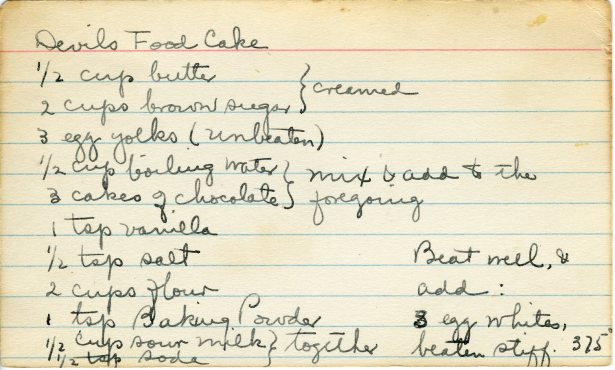 Devils Food Cake
1/2 cup butter } creamed
2 cups brown sugar
3 egg yolks (unbeaten)
1/2 cup boiling water } mix & add to the
3 cakes of chocolate } foregoing
1 tsp vanilla
1/2 tsp salt
2 cups flour
1 tsp Baking Powder
1/2 cup sour milk } together
1/2 tsp soda
Beat well, &
add:
3 egg whites,
beaten stiff. 375°